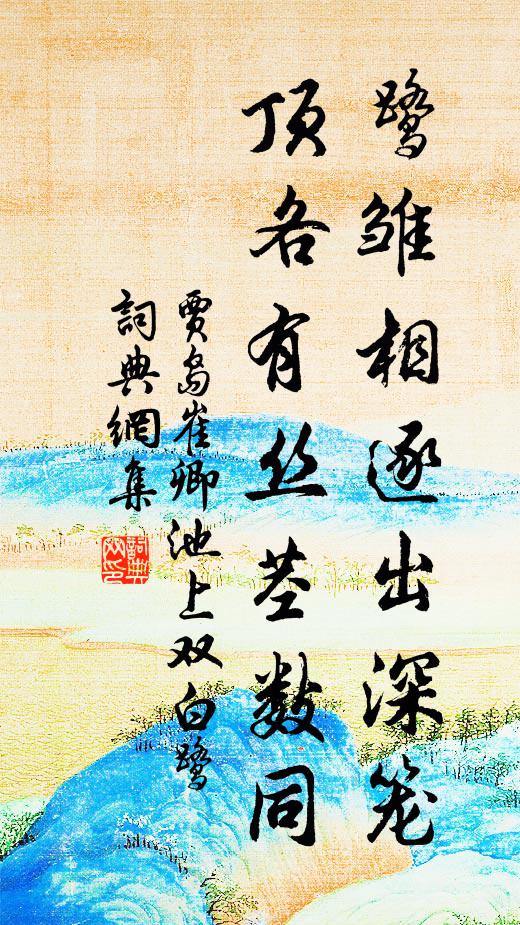 鹭雏相逐出深笼
顶各有丝茎数同
贾岛崔卿池上双白鹭
詞典網集
詞典網印